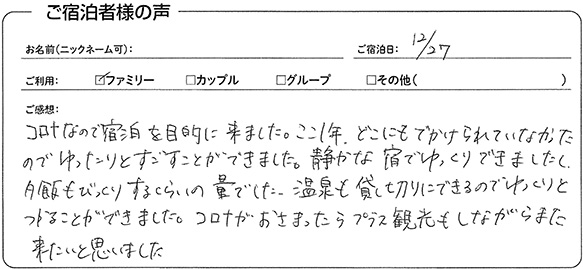 ご宿泊者様の声
お名前(ニックネーム可): ご宿泊日: 12/27
ご利用: ☑ファミリー □カップル □グループ □その他( )
ご感想:
コロナなので宿泊を目的に来ました。ここ1年、どこにもでかけられていなかった
のでゆったりとすごすことができました。静かな宿でゆっくりできましたし、
夕飯もびっくりするくらいの量でした。温泉も貸し切りにできるのでゆっくりと
つかることができました。コロナがおさまったらプラス観光もしながらまた
来たいと思いました